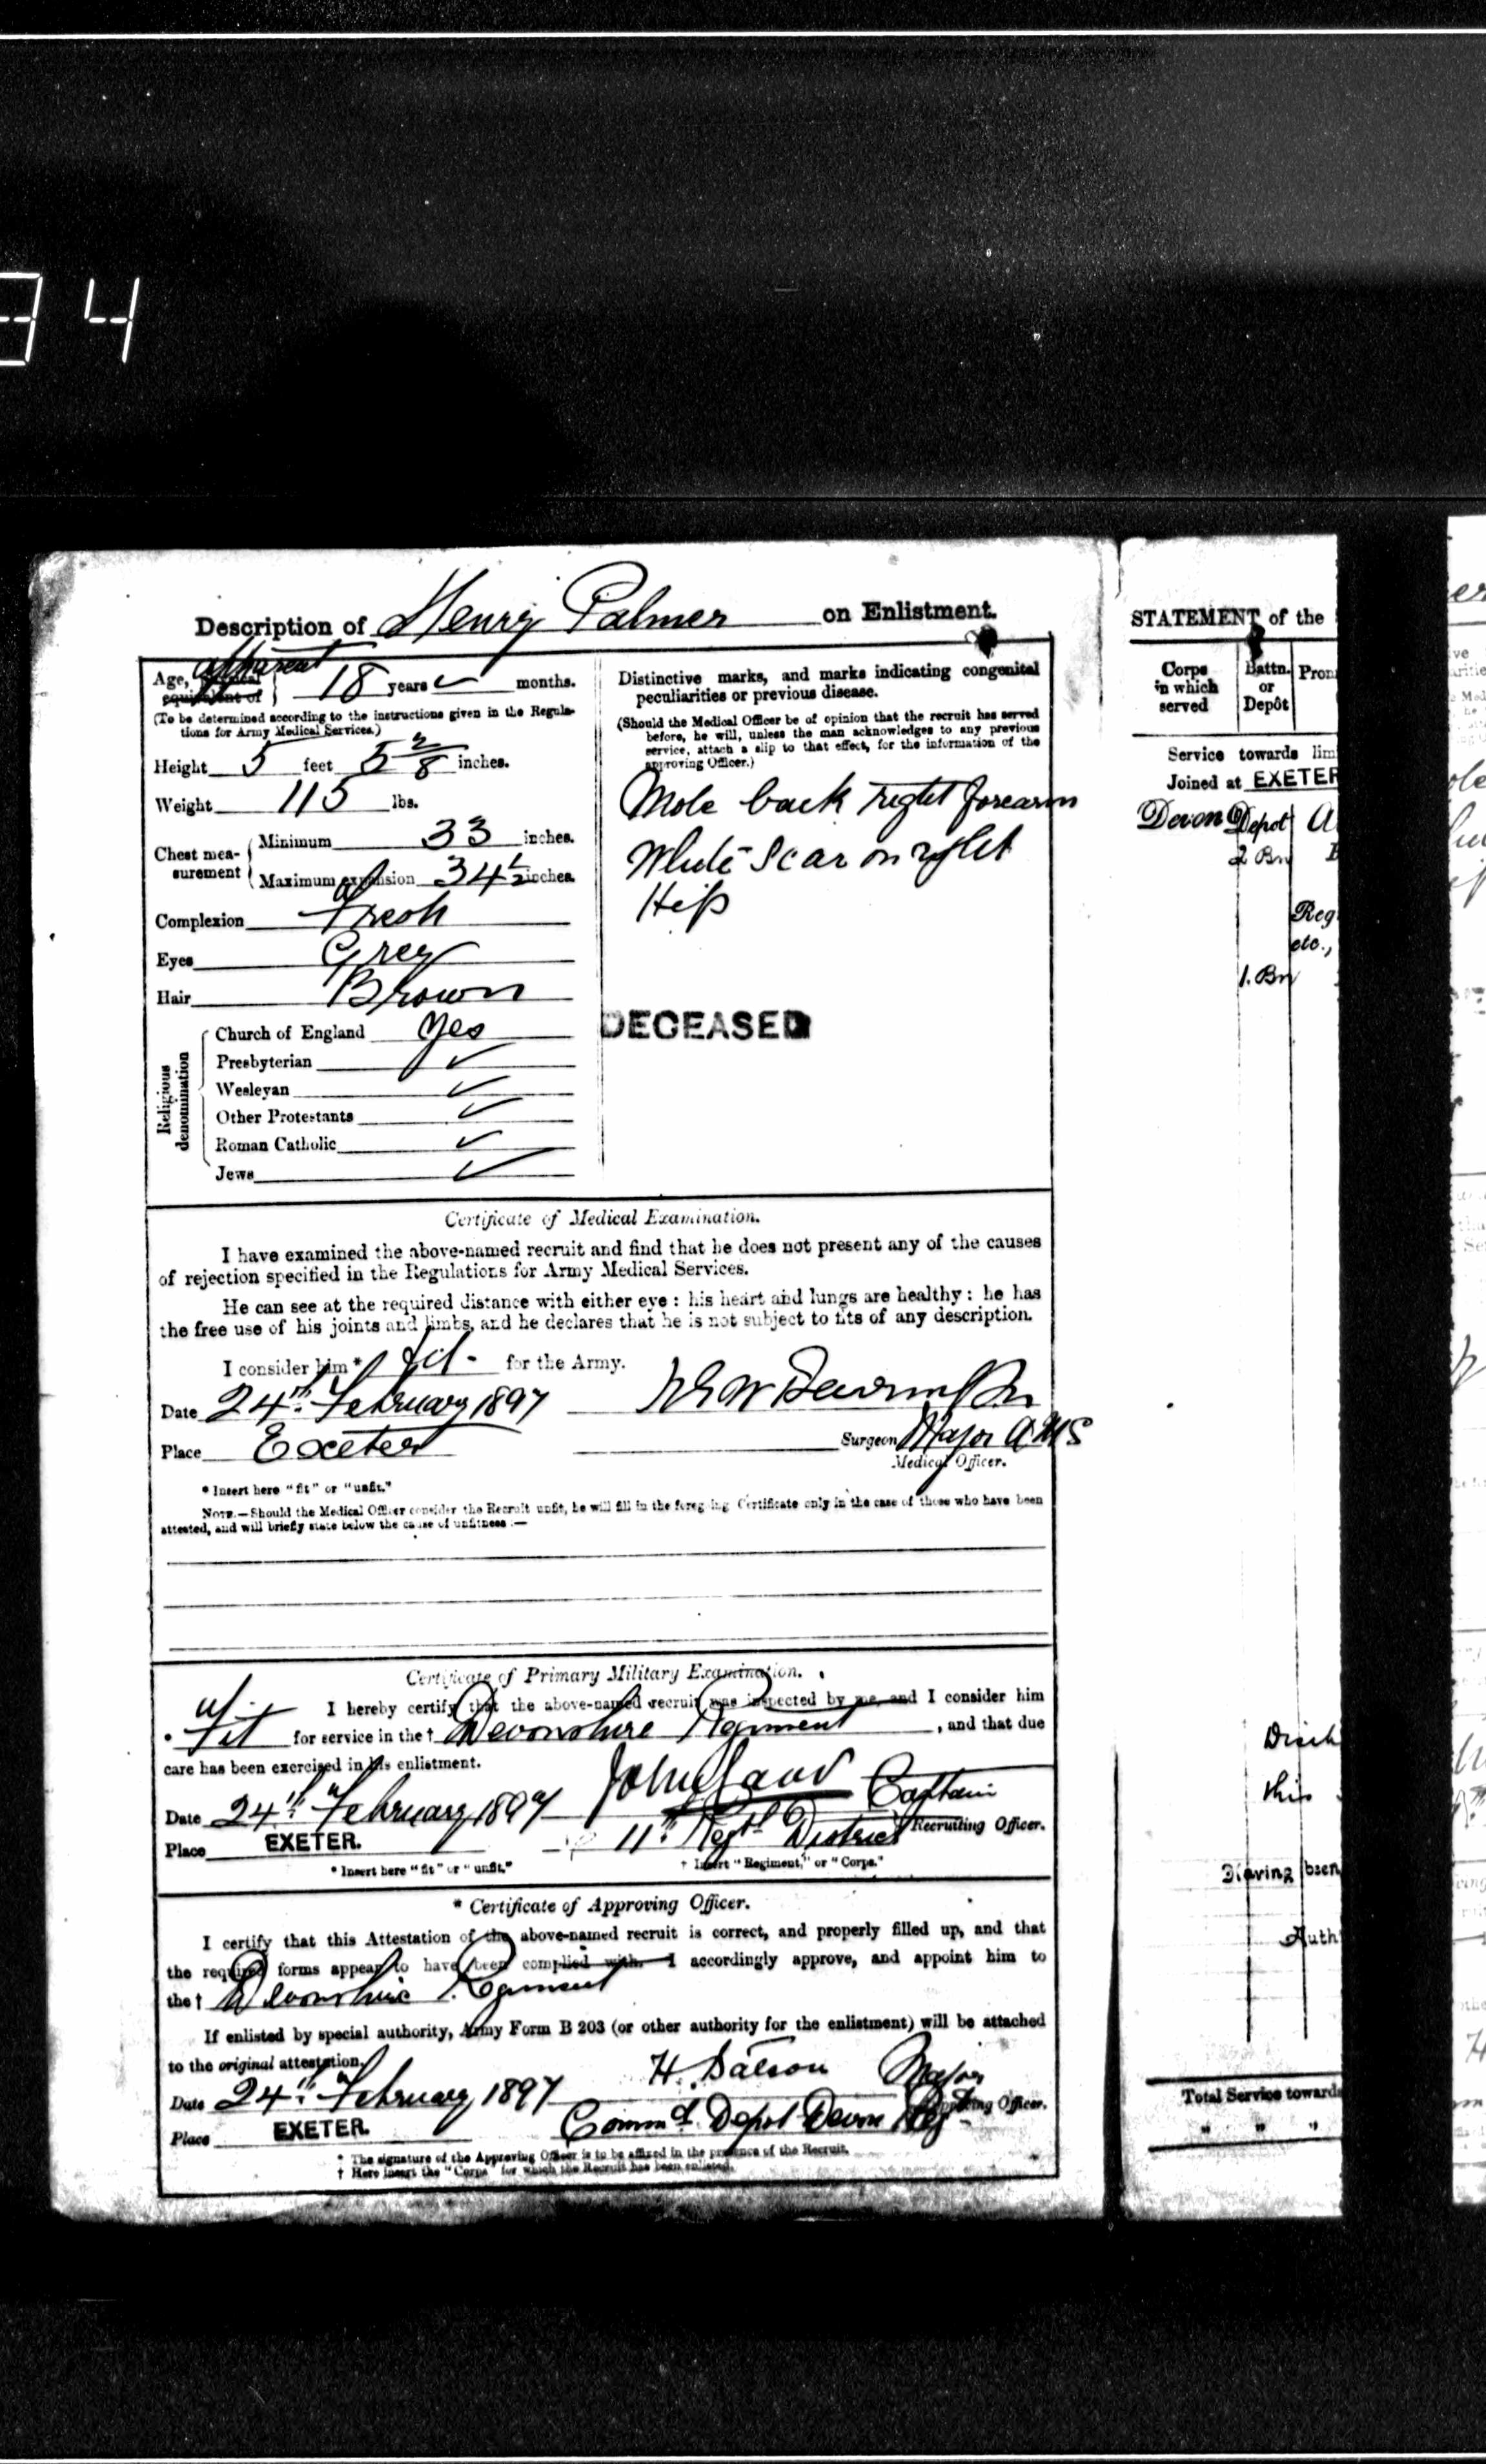 94
Description of Henry Palmer on Enlistment.
Age, physical apparent
equivalent of 18 years ✓ months.
(To be determined according to the instructions given in the Regula-
tions for Army Medical Services.)
Height 5 feet 5 2/8 inches.
Weight 115 lbs.
Chest mea-
surement
Minimum 33 inches.
Maximum expansion 34 1/2 inches.
Complexion Fresh
Eyes Grey
Hair Brown
Religious
denomination
Church of England Yes
Presbyterian ✓
Wesleyan ✓
Other Protestants ✓
Roman Catholic ✓
Jews ✓
Distinctive marks, and marks indicating congenital
peculiarities or previous disease.
(Should the Medical Officer be of opinion that the recruit has served
before, he will, unless the man acknowledges to any previous
service, attach a slip to that effect, for the information of the
approving Officer.)
Mole back right forearm
White Scar on right
Hip
DECEASED
Certificate of Medical Examination.
I have examined the above-named recruit and find that he does not present any of the causes
of rejection specified in the Regulations for Army Medical Services.
He can see at the required distance with either eye : his heart and lungs are healthy : he has
the free use of his joints and limbs, and he declares that he is not subject to fits of any description.
I consider him* fit for the Army.
Date 24th February 1897
Place Exeter Surgeon Major A M S
Medical Officer.
* Insert here "fit" or "unfit."
NOTE.—Should the Medical Officer consider the Recruit unfit, he will fill in the foregoing Certificate only in the case of those who have been
attested, and will briefly state below the cause of unfitness :—
Certificate of Primary Military Examination.
I hereby certify that the above-named recruit was inspected by me, and I consider him
* Fit for service in the † Devonshire Regiment, and that due
care has been exercised in his enlistment.
Date 24th February 1897 Captain
Place EXETER. 11th Regtl District Recruiting Officer.
* Insert here "fit" or "unfit." † Insert "Regiment," or "Corps."
* Certificate of Approving Officer.
I certify that this Attestation of the above-named recruit is correct, and properly filled up, and that
the required forms appear to have been complied with. I accordingly approve, and appoint him to
the † Devonshire Regiment
If enlisted by special authority, Army Form B 203 (or other authority for the enlistment) will be attached
to the original attestation.
H. Major
Date 24th February 1897 Approving Officer.
Place EXETER. Commdg Depot Devon Reg
* The signature of the Approving Officer is to be affixed in the presence of the Recruit.
† Here insert the "Corps" for which the Recruit has been enlisted.
STATEMENT of the
Corps
in which
served
Battn.
or
Depôt
Pron
Service towards lim
Joined at EXETER
Devon Depot A
2 Bn
Reg
etc.,
1. Bn
Disch
this
Having been
Auth
Total Service towards
" " "